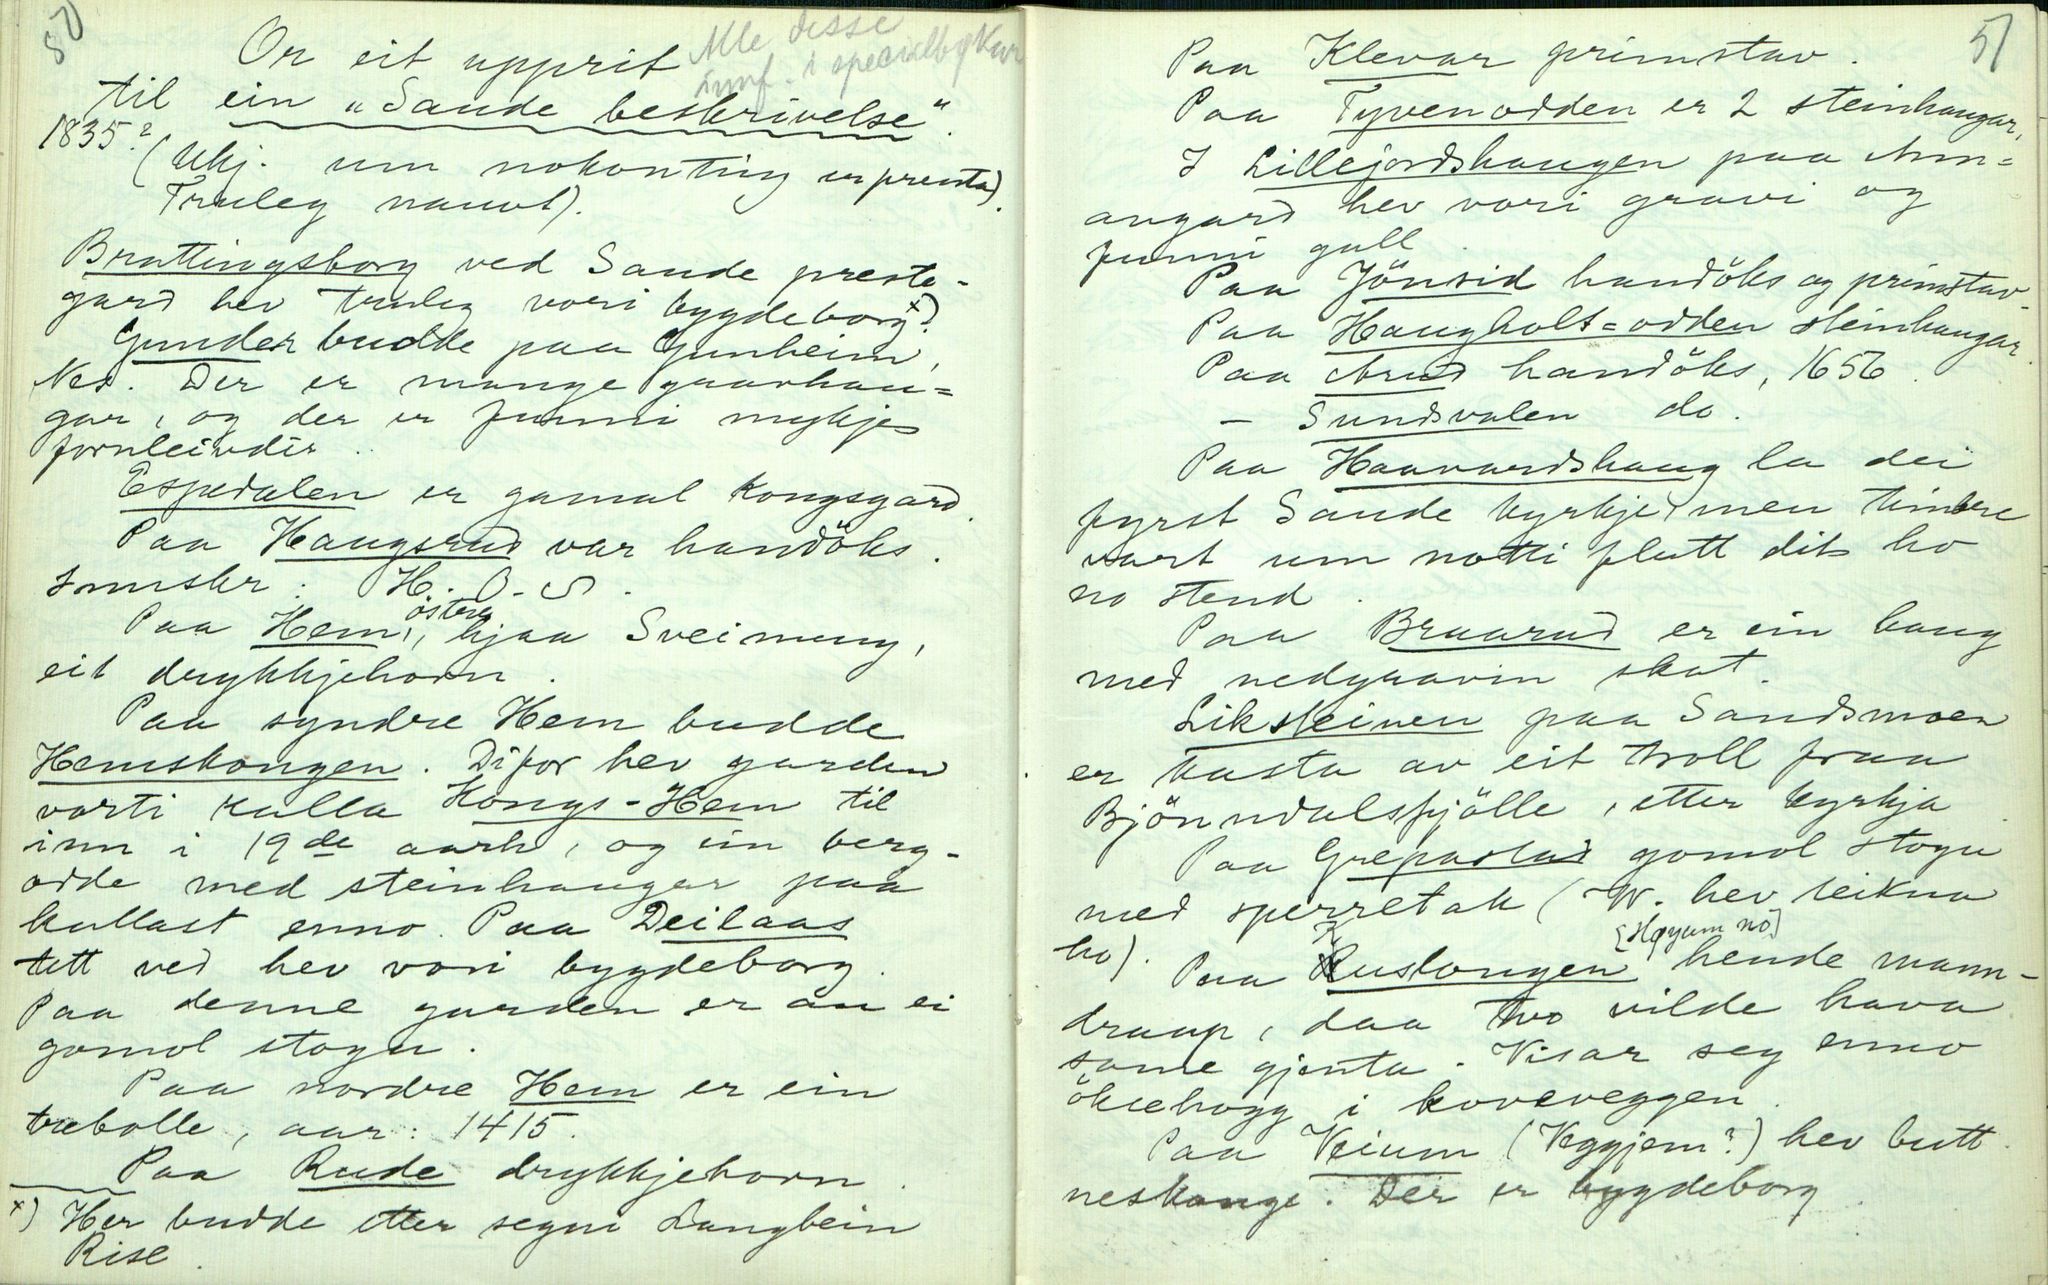 50
Or eit upprit
Alle desse
innf. i specialbøker
til ein "Sande beskrivelse".
1835?
(Ukj. um nokonting er prenta).
Truleg nauvt).
Bruttingsborg ved Sande preste-
gard hev truleg vori bygdeborg x)?
Gunder budde paa Gunheim,
Nes. Der er mange graavhau=
gar, og der er funni mykje
fornleivdir.
Espedalen er gamal kongsgard.
Paa Haugsrud var handöks.
Innskr: H. O. S.
Paa Hem, östre, hjaa Sveinung,
eit drykkjehorn.
Paa syndre Hem budde
Hemskongen. Difor hev garden
vorti kalla Kongs-Hem til
inn i 19de aarh, og ein berg-
odde med steinhaugar paa
kallast enno. Paa Deilaas
tett ved hev vori bygdeborg.
Paa denne garden er au ei
gomol stogu.
Paa nordre Hem er ein
trebolle, aar: 1415.
Paa Rude drykkjehorn.
x) Her budde etter segni Langbein
Rise.
51
Paa Klevar primstav.
Paa Tyvenodden er 2 steinhaugar,
I Lillejordshaugen paa Ann=
angard hev vori gravi og
funni gull.
Paa Jönsid handöks og primstav.
Paa Haugholt=odden steinhaugar.
Paa Arud handöks, 1656.
— Sundsvalen do.
Paa Haavardshaug la dei
fyrst Sande kyrkje, men timbre
vart um notti flutt dit ho
no stend.
Paa Braarud er ein haug
med nedgravin skat.
Liksteinen paa Sandsmoen
er kasta av eit troll fraa
Bjönndalsfjölle, etter kyrkja.
Paa Grepastad gomol stogu
med sperretak (W. hev teikna
ho).
[Høyum no]
Paa Rustangen hende mann-
draap, daa two vilde hava
same gjenta. Visar seg enno
öksehogg i koveveggen.
Paa Veium (Veggjem?) hev butt
neskonge. Der er bygdeborg.